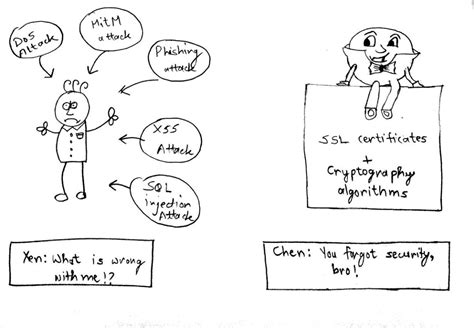 DoS
Attack
MitM
attack
Phishing
attack
XSS
Attack
SQL
injection
Attack
Xen: What is wrong
with me!?
SSL certificates
+
Cryptography
algorithms
Chen: You forgot security,
bro!